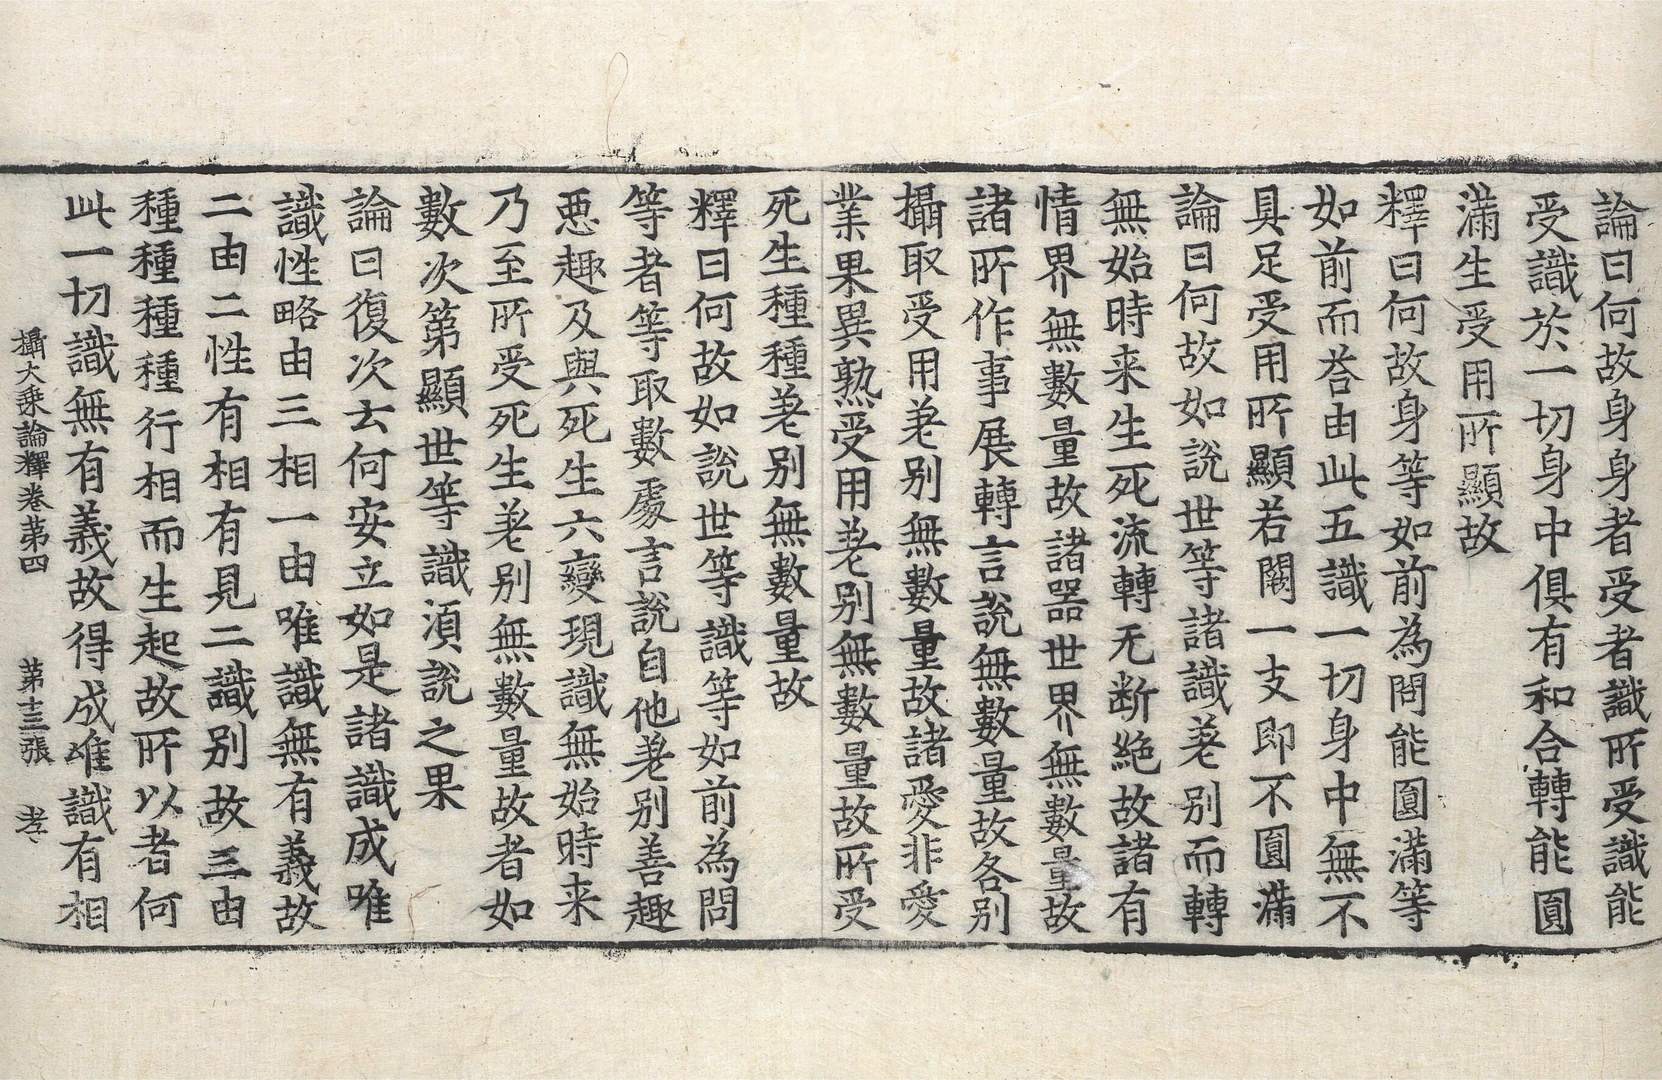 論曰何故身身者受者識所受識能
受識於一切身中俱有和合轉能圓
滿生受用所顯故
釋曰何故身等如前為問能圓滿等
如前而荅由此五識一切身中無不
具足受用所顯若闕一支即不圓滿
論曰何故如說世等諸識差别而轉
無始時来生死流轉无断絶故諸有
情界無數量故諸器世界無數量故
諸所作事展轉言說無數量故各别
攝取受用差别無數量故諸愛非愛
業果異熟受用差别無數量故所受
死生種種差别無數量故
釋曰何故如說世等識等如前為問
等者等取數處言說自他差别善趣
惡趣及與死生六變現識無始時来
乃至所受死生差别無數量故者如
數次第顯世等識須說之果
論曰復次云何安立如是諸識成唯
識性略由三相一由唯識無有義故
二由二性有相有見二識别故三由
種種種種行相而生起故所以者何
此一切識無有義故得成唯識有相
攝大乗論釋卷苐四 苐十三張 孝